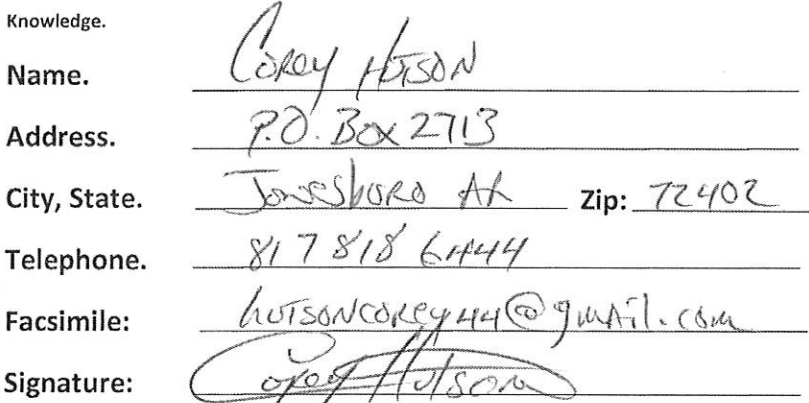 Knowledge.
Name. Corey Hutson
Address. P.O. Box 2713
City, State. Jonesboro AR Zip: 72402
Telephone. 817 818 6444
Facsimile: hutsoncorey44@gmail.com
Signature: Corey Hutson